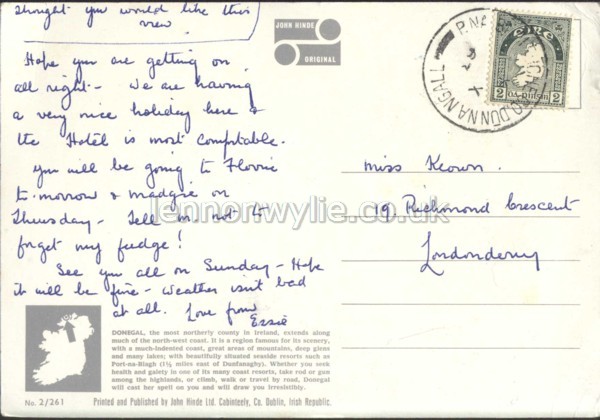 thought you would like this
view
Hope you are getting on
all right - We are having
a very nice holiday here &
the Hotel is most comfortable.
You will be going to Florrie
to-morrow & Madgie on
Thursday - Tell m. not to
forget my fudge!
See you all on Sunday - Hope
it will be fine - weather isn't bad
at all. Love from
Essie
JOHN HINDE
ORIGINAL
ÉIRE
2
DÚN NA NGALL
Miss Keown.
19 Richmond Crescent
Londonderry
lennonwylie.co.uk
DONEGAL, the most northerly county in Ireland, extends along
much of the north-west coast. It is a region famous for its scenery,
with a much-indented coast, great areas of mountains, deep glens
and many lakes; with beautifully situated seaside resorts such as
Port-na-Blagh (1½ miles east of Dunfanaghy). Whether you seek
health and gaiety in one of its many coast resorts, take rod or gun
among the highlands, or climb, walk or travel by road, Donegal
will cast her spell on you and will draw you irresistibly.
No. 2/261
Printed and Published by John Hinde Ltd. Cabinteely, Co. Dublin, Irish Republic.